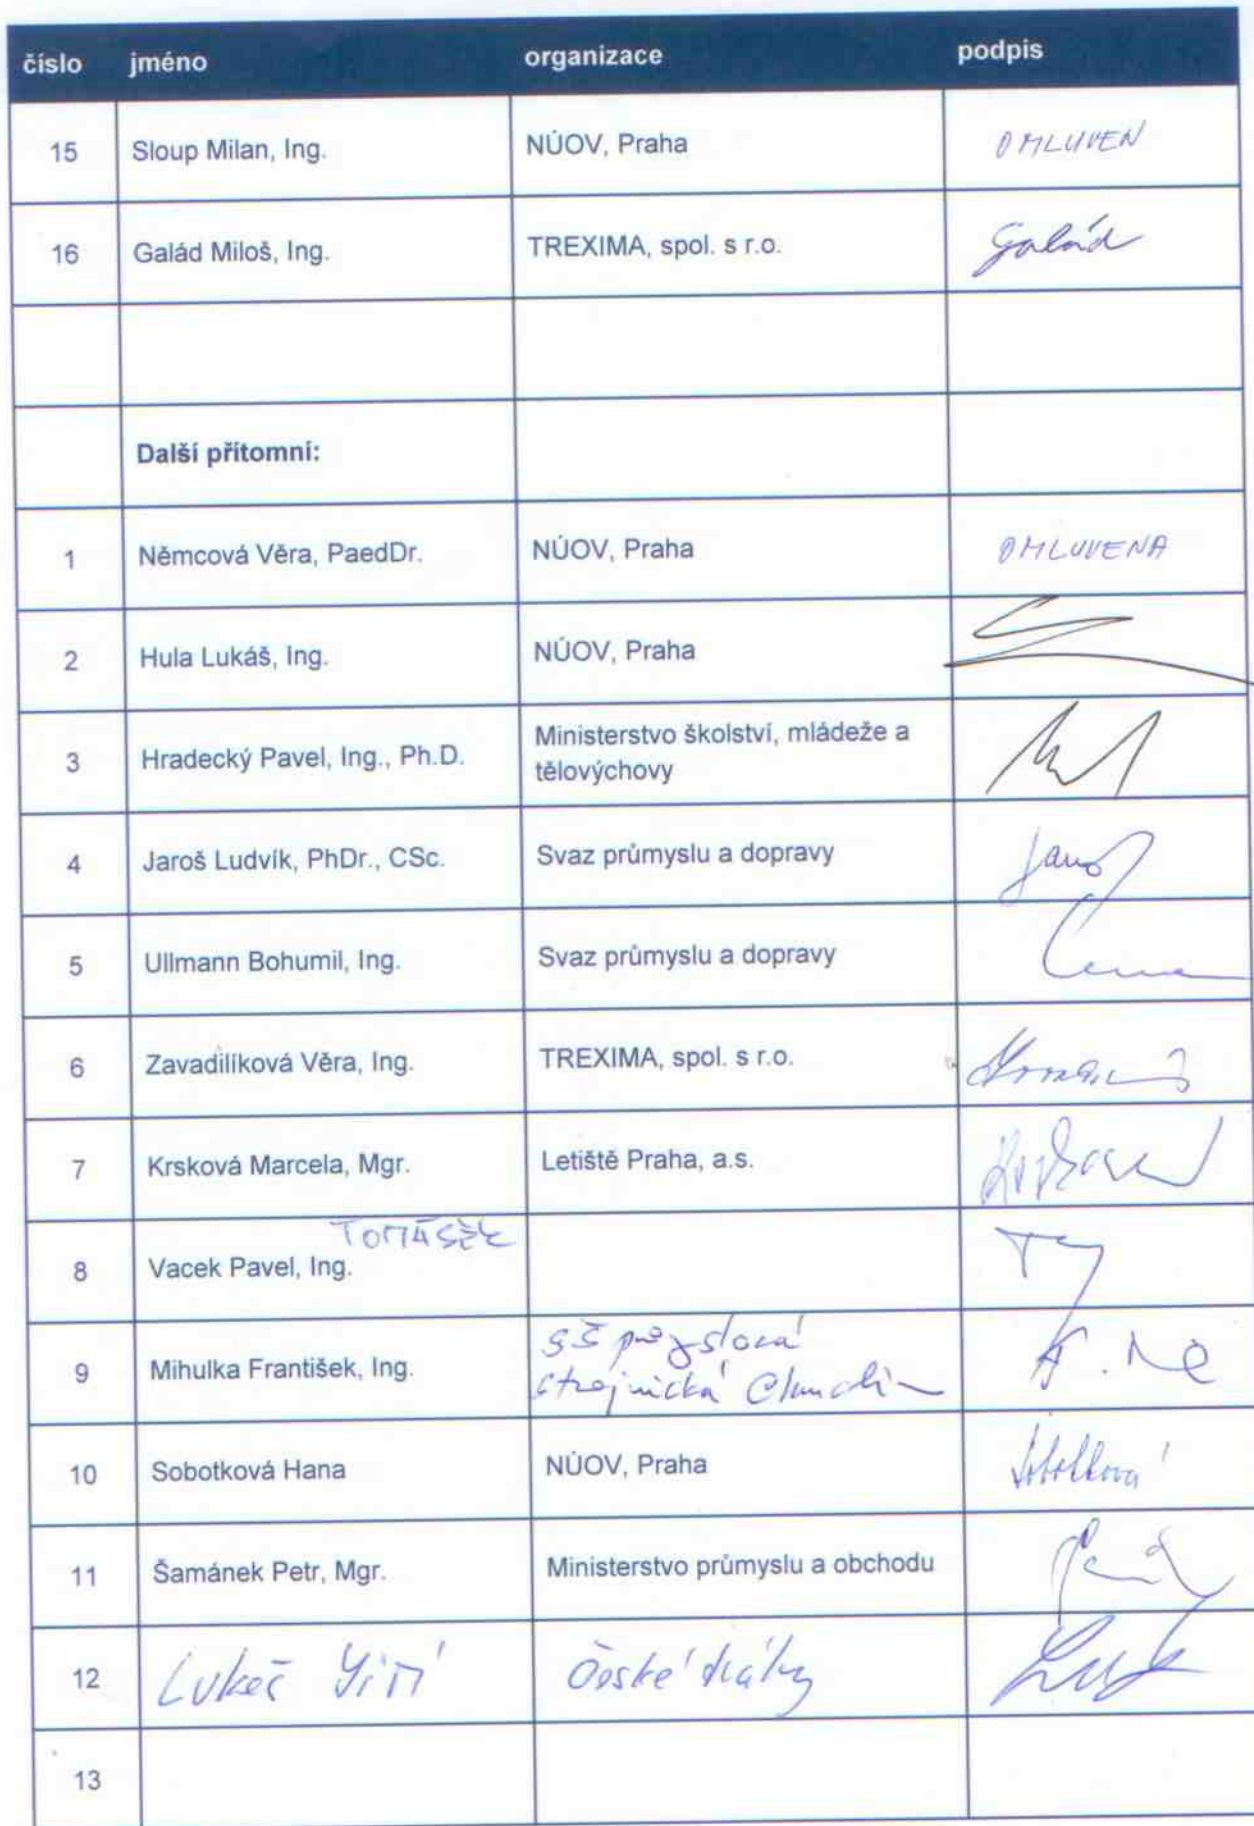 číslo jméno organizace podpis
15 Sloup Milan, Ing. NÚOV, Praha OMLUVEN
16 Galád Miloš, Ing. TREXIMA, spol. s r.o. Galád
Další přítomní:
1 Němcová Věra, PaedDr. NÚOV, Praha OMLUVENA
2 Hula Lukáš, Ing. NÚOV, Praha
3 Hradecký Pavel, Ing., Ph.D. Ministerstvo školství, mládeže a
tělovýchovy
4 Jaroš Ludvík, PhDr., CSc. Svaz průmyslu a dopravy
5 Ullmann Bohumil, Ing. Svaz průmyslu a dopravy
6 Zavadilíková Věra, Ing. TREXIMA, spol. s r.o.
7 Krsková Marcela, Mgr. Letiště Praha, a.s.
TOMÁŠEK
8 Vacek Pavel, Ing.
SŠ
9 Mihulka František, Ing. strojnická
10 Sobotková Hana NÚOV, Praha Sobotková
11 Šamánek Petr, Mgr. Ministerstvo průmyslu a obchodu
12 Jiří České dráhy
13